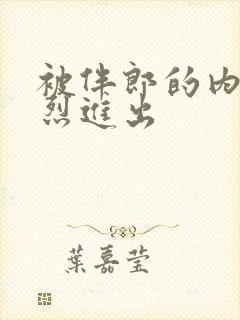 被伴郎的内
烈进出
葉嘉莹